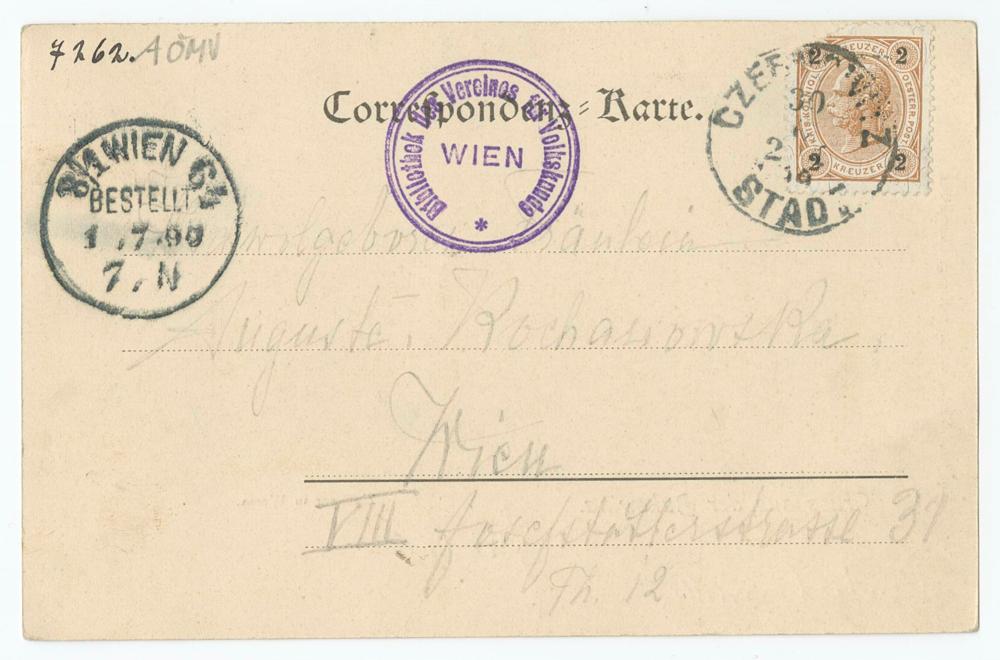 7262. AÖMV
Correspondenz-Karte.
Bibliothek des Vereines für Volkskunde
WIEN
*
CZERNOWITZ
30
STADT
2 KREUZER 2
KAIS. KÖNIGL. OESTERR. POST
2 KREUZER 2
8/1 WIEN 64
BESTELLT
1.7.99
7.N
Fräulein
Auguste Kochanowska,
Wien
VIII Josefstätterstrasse 31
Th. 12